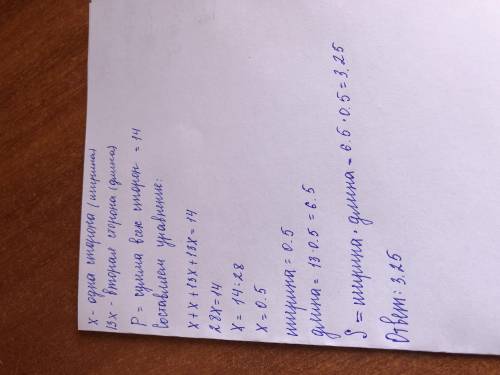 x - одна сторона (ширина)
13x - вторая сторона (длина)
P = сумма всех сторон = 14
Составляем уравнение:
x+x+13x+13x=14
28x=14
x = 14:28
x = 0.5
ширина = 0.5
длина = 13·0.5=6.5
S = ширина · длина = 6.5·0.5=3.25
Ответ: 3,25